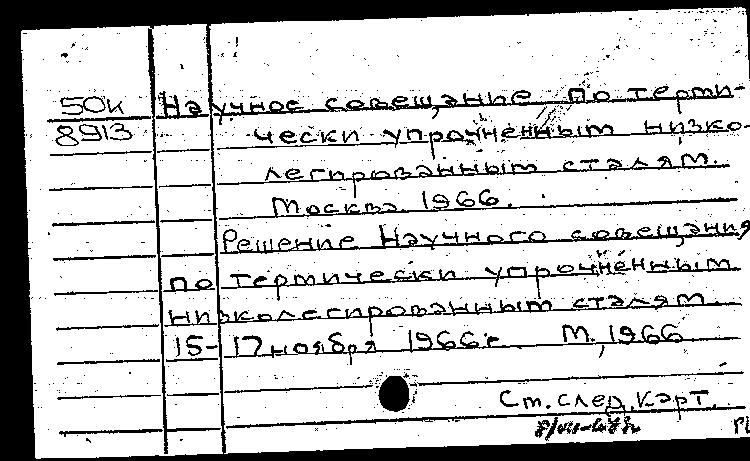 50к Научное совещание по терми-
8913 чески упрочненным низко-
легированным сталям.
Москва. 1966.
Решение Научного совещания
по термически упрочненным
низколегированным сталям.
15-17 ноября 1966г. М., 1966
См. след. карт.